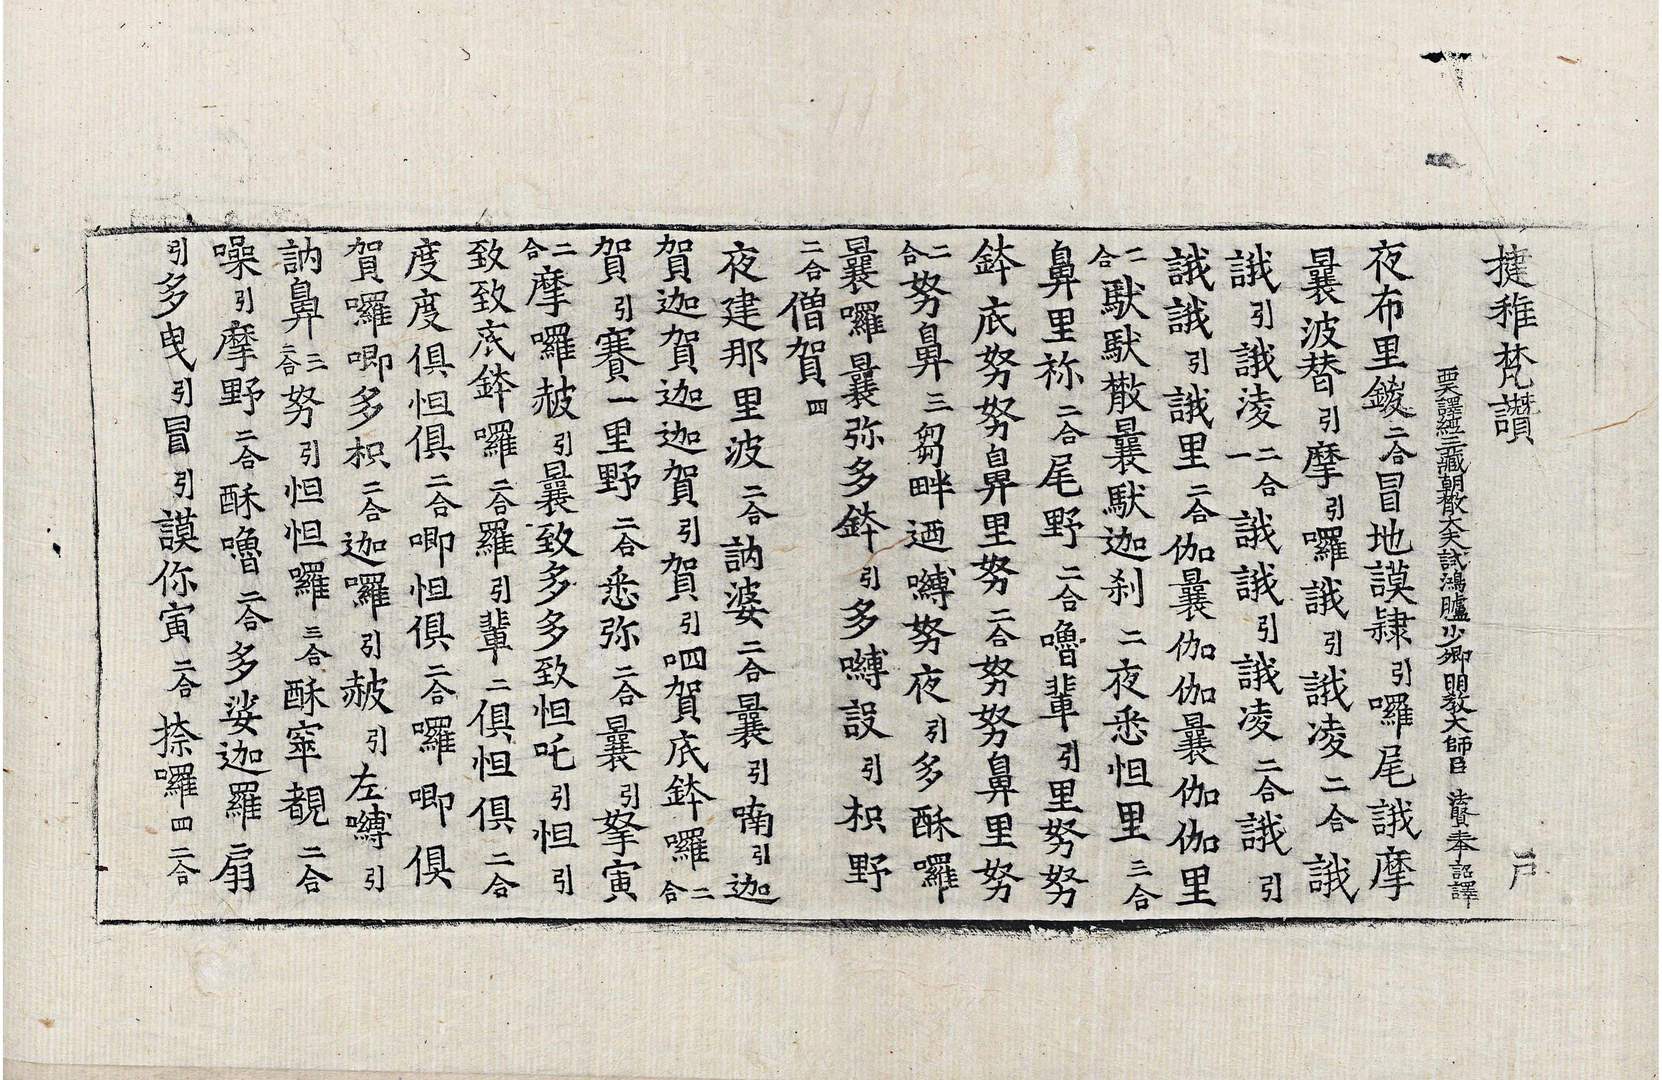 揵稚梵讚 戶
西天譯經三藏朝散大夫試鴻臚少卿明教大師臣 法賢奉 詔譯
夜布里鍐二合冒地謨隷引囉尾誐摩
曩波替引摩引囉誐引誐凌二合誐
誐引誐凌二合一誐誐引誐凌二合誐引
誐誐引誐里二合伽曩伽伽曩伽伽里
二合馱馱㪚曩馱迦刹二夜悉怛里三合
鼻里祢二合尾野二合嚕輩引里努努
鉢底努努鼻里努二合努努鼻里努
二合努鼻三芻畔迺嚩努夜引多酥囉
曩囉曩弥多鉢引多嚩設引枳野
二合僧賀四
夜建那里波二合訥婆二合曩引喃引迦
賀迦賀迦迦賀引賀引呬賀底鉢囉二合
賀引賽一里野二合悉弥二合曩引拏寅
二合摩囉赦引曩致多多致怛吒引怛引
致致底鉢囉二合羅引輩二俱怛俱二合
度度俱怛俱二合唧怛俱二合囉唧俱
賀囉唧多枳二合迦囉引赦引左嚩引
訥鼻二合努引怛怛囉三合酥窣覩二合
噪引摩野二合酥嚕二合多娑迦羅扇
引多曳引冒引謨你寅二合捺囉四二合